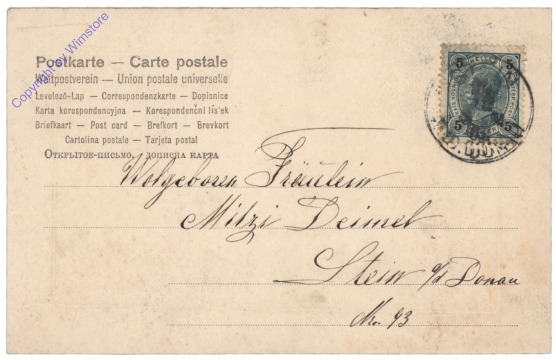 Copyright by Wimstore
Postkarte — Carte postale
Weltpostverein — Union postale universelle
Levelező-Lap — Correspondenzkarte — Dopisnice
Karta korespondencyjna — Korespondenční lístek
Briefkaart — Post card — Brefkort — Brevkort
Cartolina postale — Tarjeta postal
Открытое-письмо, дописна карта
5 5
5 5
Wolgeboren Fräulein
Mitzi Deimel
Stein a/d Donau
No. 93